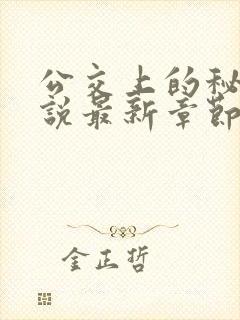 公交上的秘
説最新章節
金正哲